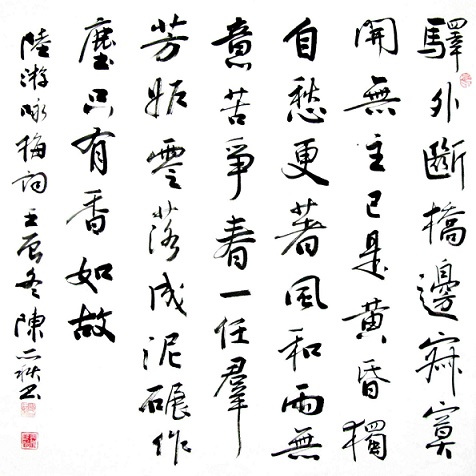 驛外斷橋邊寂寞
開無主已是黃昏獨
自愁更著風和雨無
意苦爭春一任羣
芳妬零落成泥碾作
塵只有香如故
陸游咏梅詞壬辰冬陳